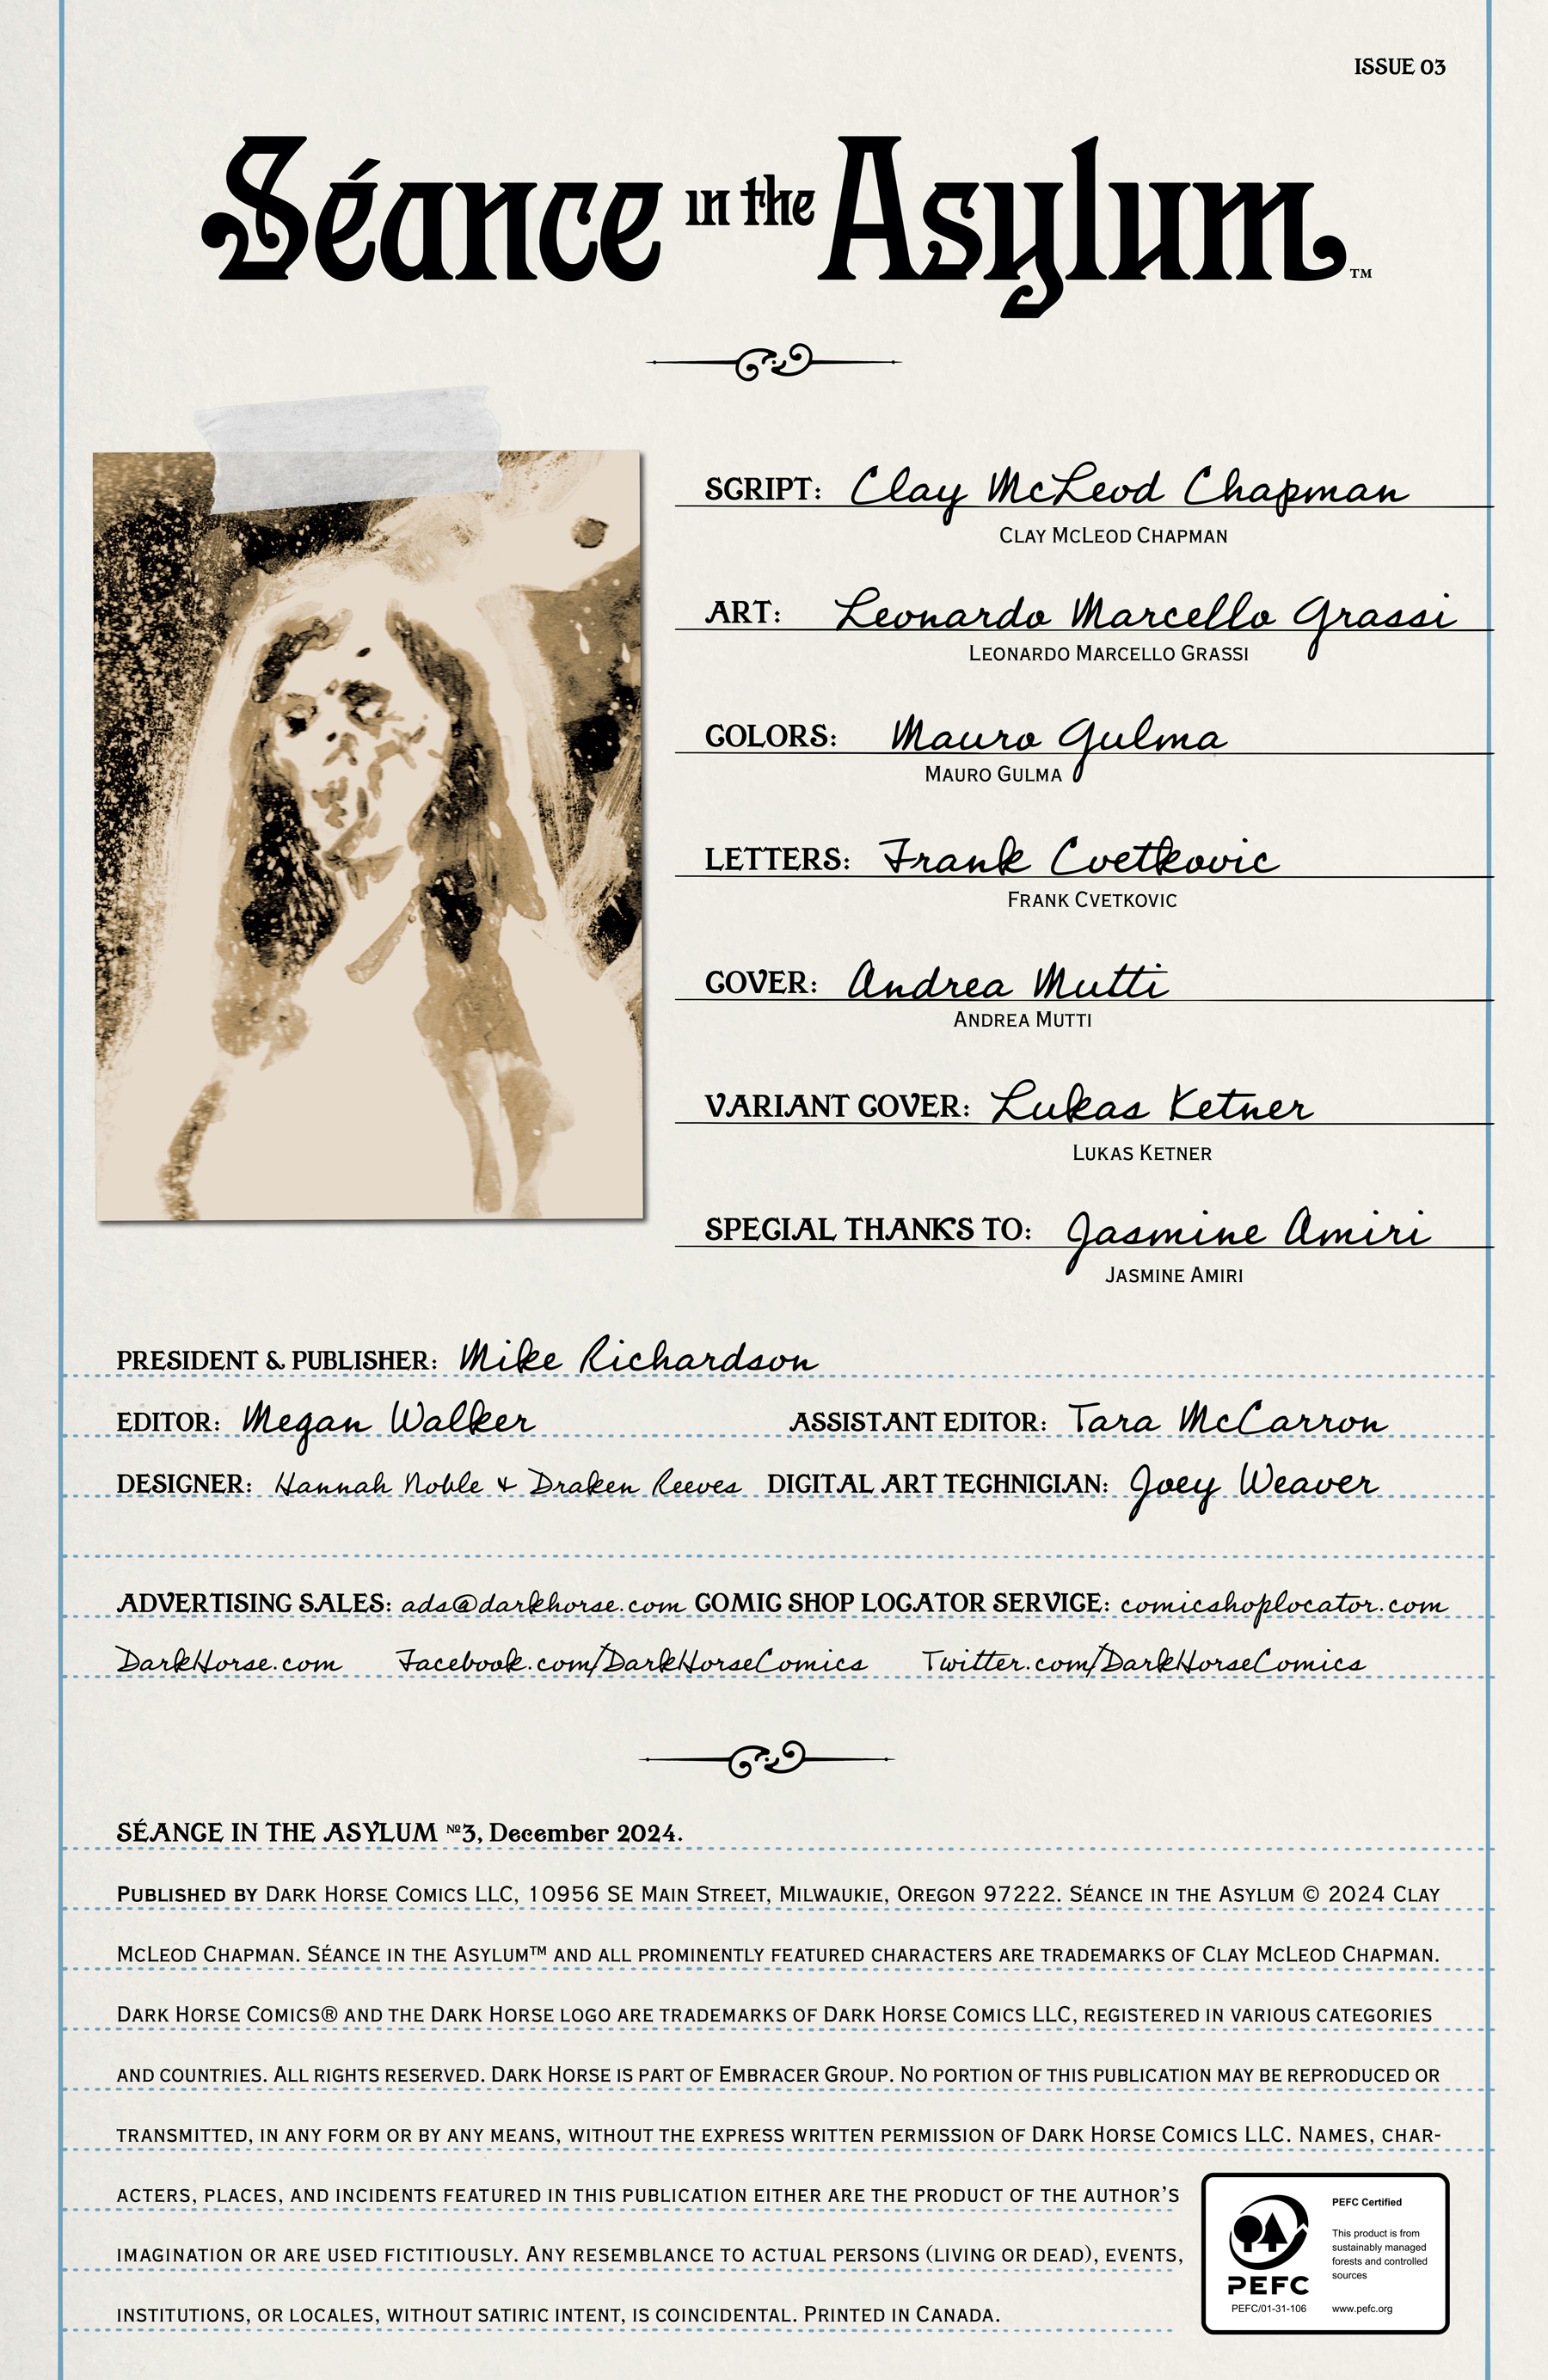 ISSUE 03
Séance in the Asylum™
SCRIPT: Clay McLeod Chapman
Clay McLeod Chapman
ART: Leonardo Marcello Grassi
Leonardo Marcello Grassi
COLORS: Mauro Gulma
Mauro Gulma
LETTERS: Frank Cvetkovic
Frank Cvetkovic
COVER: Andrea Mutti
Andrea Mutti
VARIANT COVER: Lukas Ketner
Lukas Ketner
SPECIAL THANKS TO: Jasmine Amiri
Jasmine Amiri
PRESIDENT & PUBLISHER: Mike Richardson
EDITOR: Megan Walker ASSISTANT EDITOR: Tara McCarron
DESIGNER: Hannah Noble & Draken Reeves DIGITAL ART TECHNICIAN: Joey Weaver
ADVERTISING SALES: ads@darkhorse.com COMIC SHOP LOCATOR SERVICE: comicshoplocator.com
DarkHorse.com Facebook.com/DarkHorseComics Twitter.com/DarkHorseComics
SÉANCE IN THE ASYLUM №3, December 2024.
Published by Dark Horse Comics LLC, 10956 SE Main Street, Milwaukie, Oregon 97222. Séance in the Asylum © 2024 Clay
McLeod Chapman. Séance in the Asylum™ and all prominently featured characters are trademarks of Clay McLeod Chapman.
Dark Horse Comics® and the Dark Horse logo are trademarks of Dark Horse Comics LLC, registered in various categories
and countries. All rights reserved. Dark Horse is part of Embracer Group. No portion of this publication may be reproduced or
transmitted, in any form or by any means, without the express written permission of Dark Horse Comics LLC. Names, char-
acters, places, and incidents featured in this publication either are the product of the author's
imagination or are used fictitiously. Any resemblance to actual persons (living or dead), events,
institutions, or locales, without satiric intent, is coincidental. Printed in Canada.
PEFC Certified
This product is from
sustainably managed
forests and controlled
sources
PEFC
PEFC/01-31-106
www.pefc.org